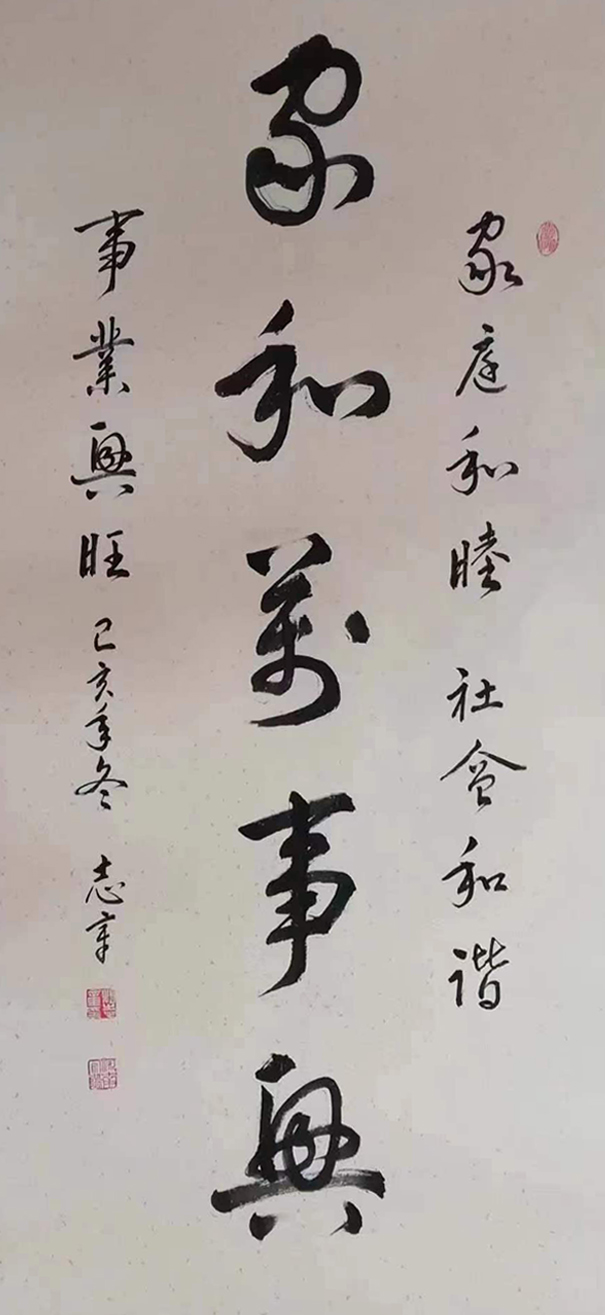 家庭和睦 社会和谐
家和萬事興
事業興旺 己亥年冬 志章